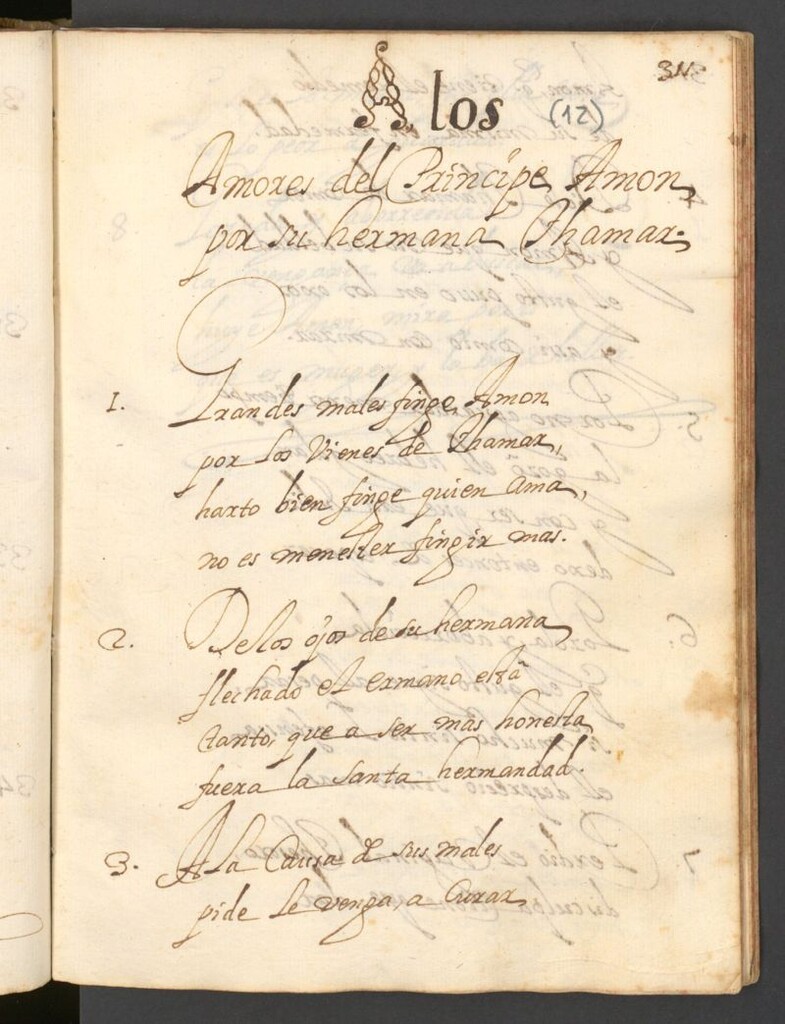 A los (12)
Amores del Principe Amon,
por su hermana Thamar.
1. Grandes males finge Amon
por los Vienes de Thamar,
harto bien finge quien ama,
no es menester fingir mas.
2. De los ojos de su hermana
flechado el ermano està
tanto, que a ser mas honesta
fuera la santa hermandad.
3. A la Causa de sus males
pide le venga, a Curar,